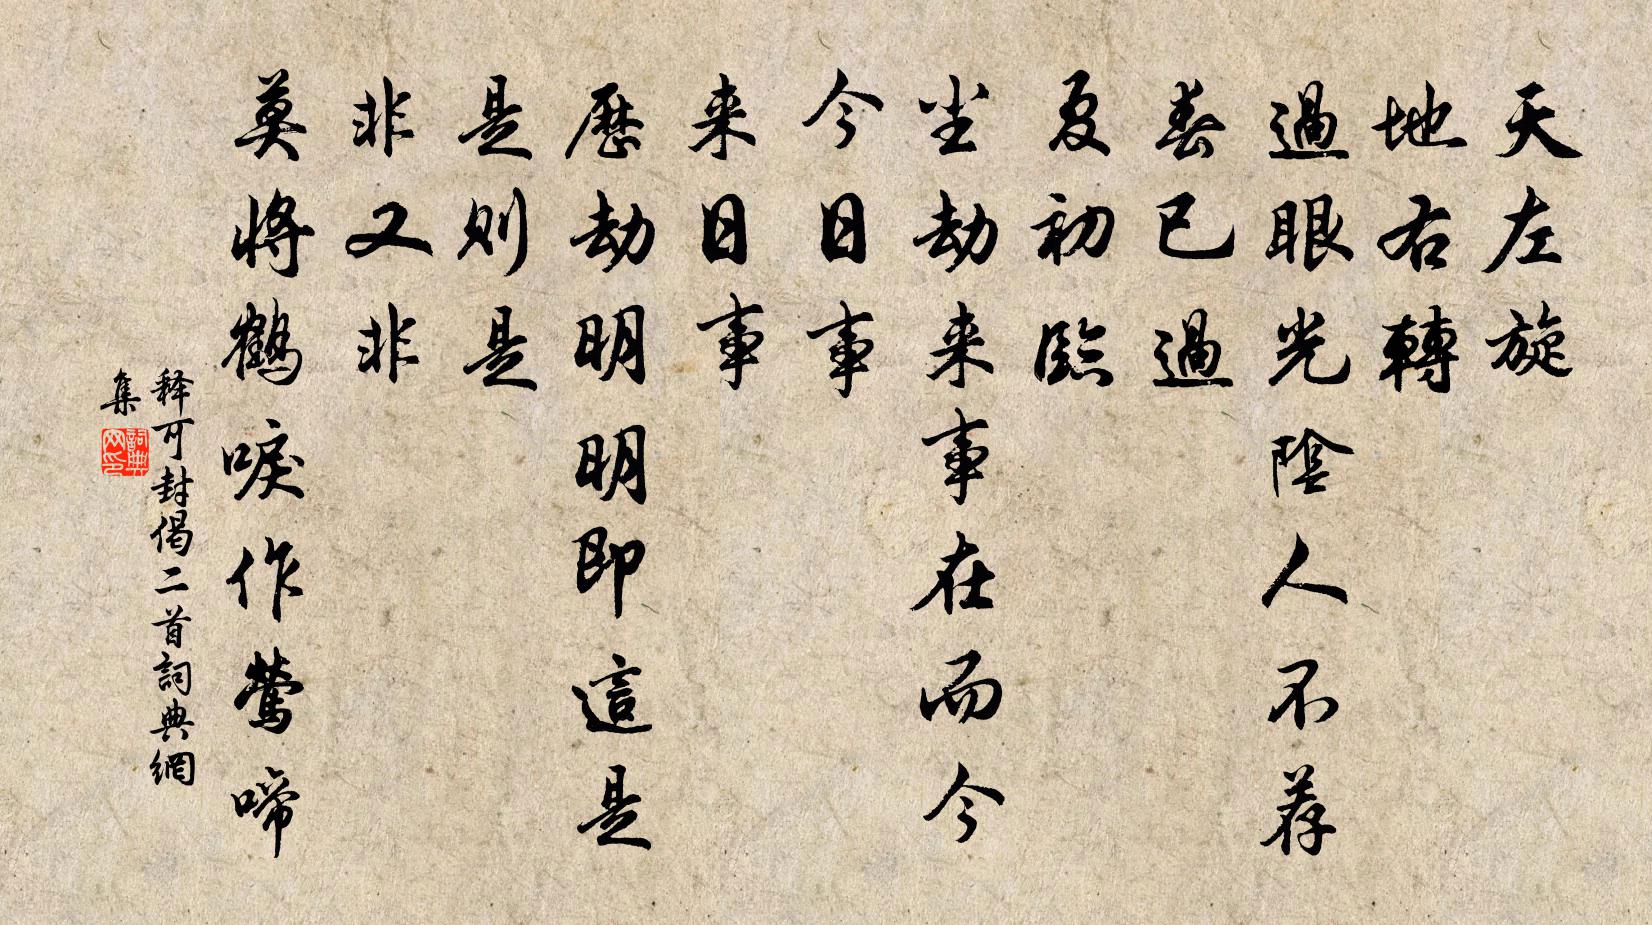 天左旋
地右轉
過眼光陰人不荐
春已過
夏初臨
尘劫来事在而今
今日事
来日事
歷劫明明即這是
是則是
非又非
莫將鶴唳作鶯啼
释可封偈二首詞典網
集
詞典
网印